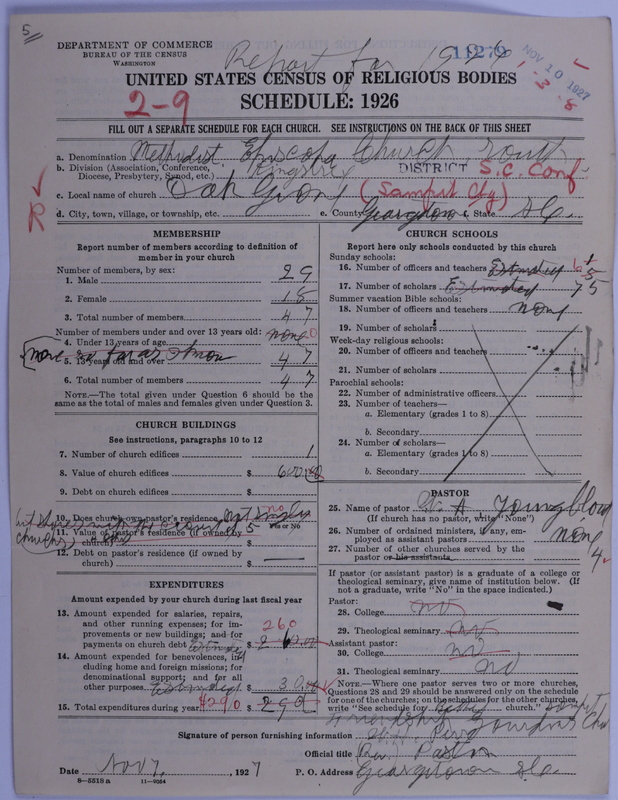 5
DEPARTMENT OF COMMERCE
BUREAU OF THE CENSUS
WASHINGTON
Report for 1926
11279
NOV 10 1927
UNITED STATES CENSUS OF RELIGIOUS BODIES
2-9
SCHEDULE: 1926
FILL OUT A SEPARATE SCHEDULE FOR EACH CHURCH. SEE INSTRUCTIONS ON THE BACK OF THIS SHEET
a. Denomination Methodist Episcopal Church, South
b. Division (Association, Conference, Diocese, Presbytery, Synod, etc.) Kingstree DISTRICT S.C. Conf
c. Local name of church Oak Grove (Sampit Chg)
R
d. City, town, village, or township, etc. e. County Georgetown f. State S.C.
MEMBERSHIP
Report number of members according to definition of member in your church
Number of members, by sex:
1. Male 29
2. Female 18
3. Total number of members 47
Number of members under and over 13 years old:
4. Under 13 years of age none 0
5. 13 years old and over 47
6. Total number of members 47
NOTE.—The total given under Question 6 should be the same as the total of males and females given under Question 3.
CHURCH BUILDINGS
See instructions, paragraphs 10 to 12
7. Number of church edifices 1
8. Value of church edifices $ 600.00
9. Debt on church edifices $
10. Does church own pastor's residence not singly no
Yes or No
11. Value of pastor's residence (if owned by church) $
12. Debt on pastor's residence (if owned by church) $
EXPENDITURES
Amount expended by your church during last fiscal year
13. Amount expended for salaries, repairs, and other running expenses; for improvements or new buildings; and for payments on church debt $ 260
14. Amount expended for benevolences, including home and foreign missions; for denominational support; and for all other purposes Estimated $ 30.00
15. Total expenditures during year $290 $ 290
CHURCH SCHOOLS
Report here only schools conducted by this church
Sunday schools:
16. Number of officers and teachers Estimated 5
17. Number of scholars Estimated 75
Summer vacation Bible schools:
18. Number of officers and teachers none
19. Number of scholars
Week-day religious schools:
20. Number of officers and teachers
21. Number of scholars
Parochial schools:
22. Number of administrative officers
23. Number of teachers—
a. Elementary (grades 1 to 8)
b. Secondary
24. Number of scholars—
a. Elementary (grades 1 to 8)
b. Secondary
PASTOR
25. Name of pastor A. Youngblood
(If church has no pastor, write "None")
26. Number of ordained ministers, if any, employed as assistant pastors none
27. Number of other churches served by the pastor or his assistants 4
If pastor (or assistant pastor) is a graduate of a college or theological seminary, give name of institution below. (If not a graduate, write "No" in the space indicated.)
Pastor:
28. College no
29. Theological seminary no
Assistant pastor:
30. College no
31. Theological seminary no
NOTE.—Where one pastor serves two or more churches, Questions 28 and 29 should be answered only on the schedule for one of the churches; on the schedules for the other churches, write "See schedule for church." Sampit
Signature of person furnishing information
Official title (Rev.) Pastor
Date Nov 7, 1927
P. O. Address Georgetown S.C.
8—5318 a 11—9554